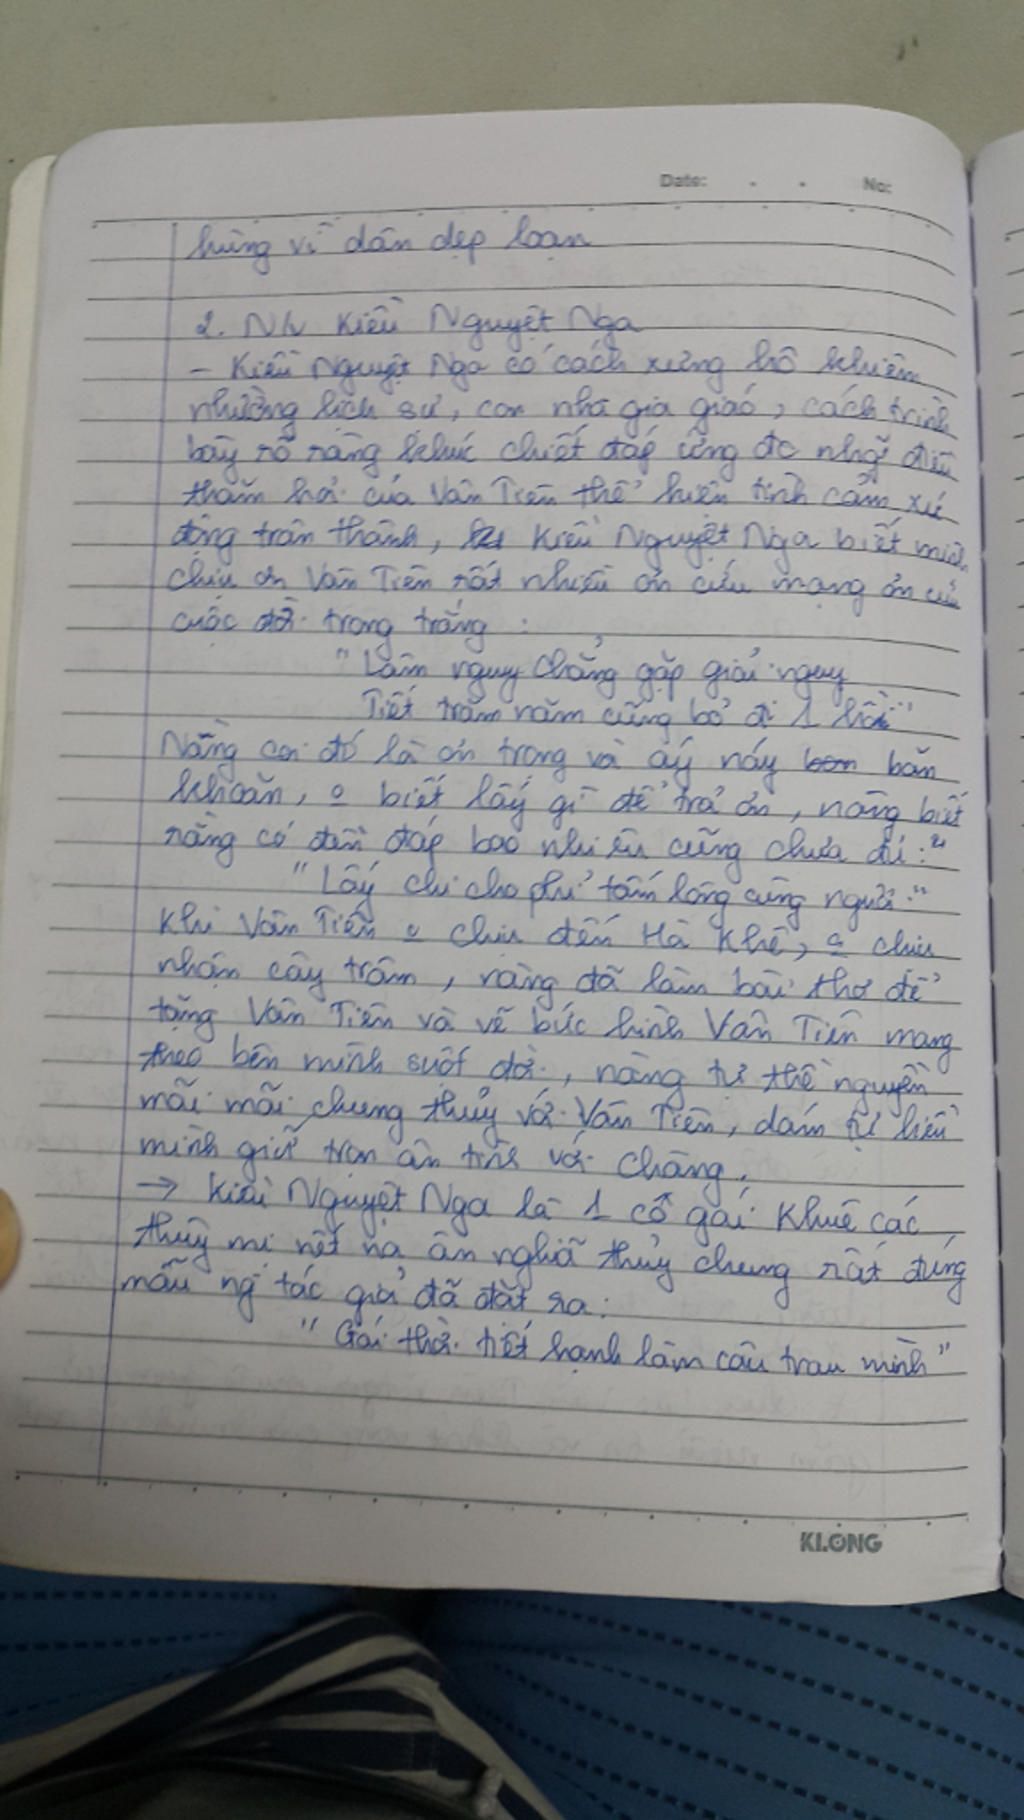 Date: . . No:
hùng vì dân dẹp loạn
2. N/v Kiều Nguyệt Nga
- Kiều Nguyệt Nga có cách xưng hô khiêm
nhường lịch sự, con nhà gia giáo, cách trình
bày rõ ràng khúc chiết đáp ứng đc nhữg điều
thăm hỏi của Vân Tiên thể hiện tình cảm xú
động trân thành, Kiều Nguyệt Nga biết mình
chịu ơn Vân Tiên rất nhiều ơn cứu mạng ơn cứu
cuộc đời trong trắng :
"Lâm nguy chẳng gặp giải nguy
Tiết trăm năm cũng bỏ đi 1 hồi"
Nàng coi đó là ơn trọng và áy náy băn
khoăn, o biết lấy gì để trả ơn, nàng biết
rằng có đền đáp bao nhiêu cũng chưa đủ:"
"Lấy chi cho phỉ tấm lòng cùng ngươi."
Khi Vân Tiên o chịu đến Hà Khê, o chịu
nhận cây trâm, nàng đã làm bài thơ để
tặng Vân Tiên và vẽ bức hình Vân Tiên mang
theo bên mình suốt đời, nàng tự thề nguyền
mãi mãi chung thủy với Vân Tiên, dám tự liều
mình giữ trọn ân tình với chàng.
→ Kiều Nguyệt Nga là 1 cô gái khuê các
thùy mị nết na ân nghĩa thủy chung rất đúng
mẫu ng tác giả đã đặt ra:
"Gái thời tiết hạnh làm câu trau mình"
KLONG